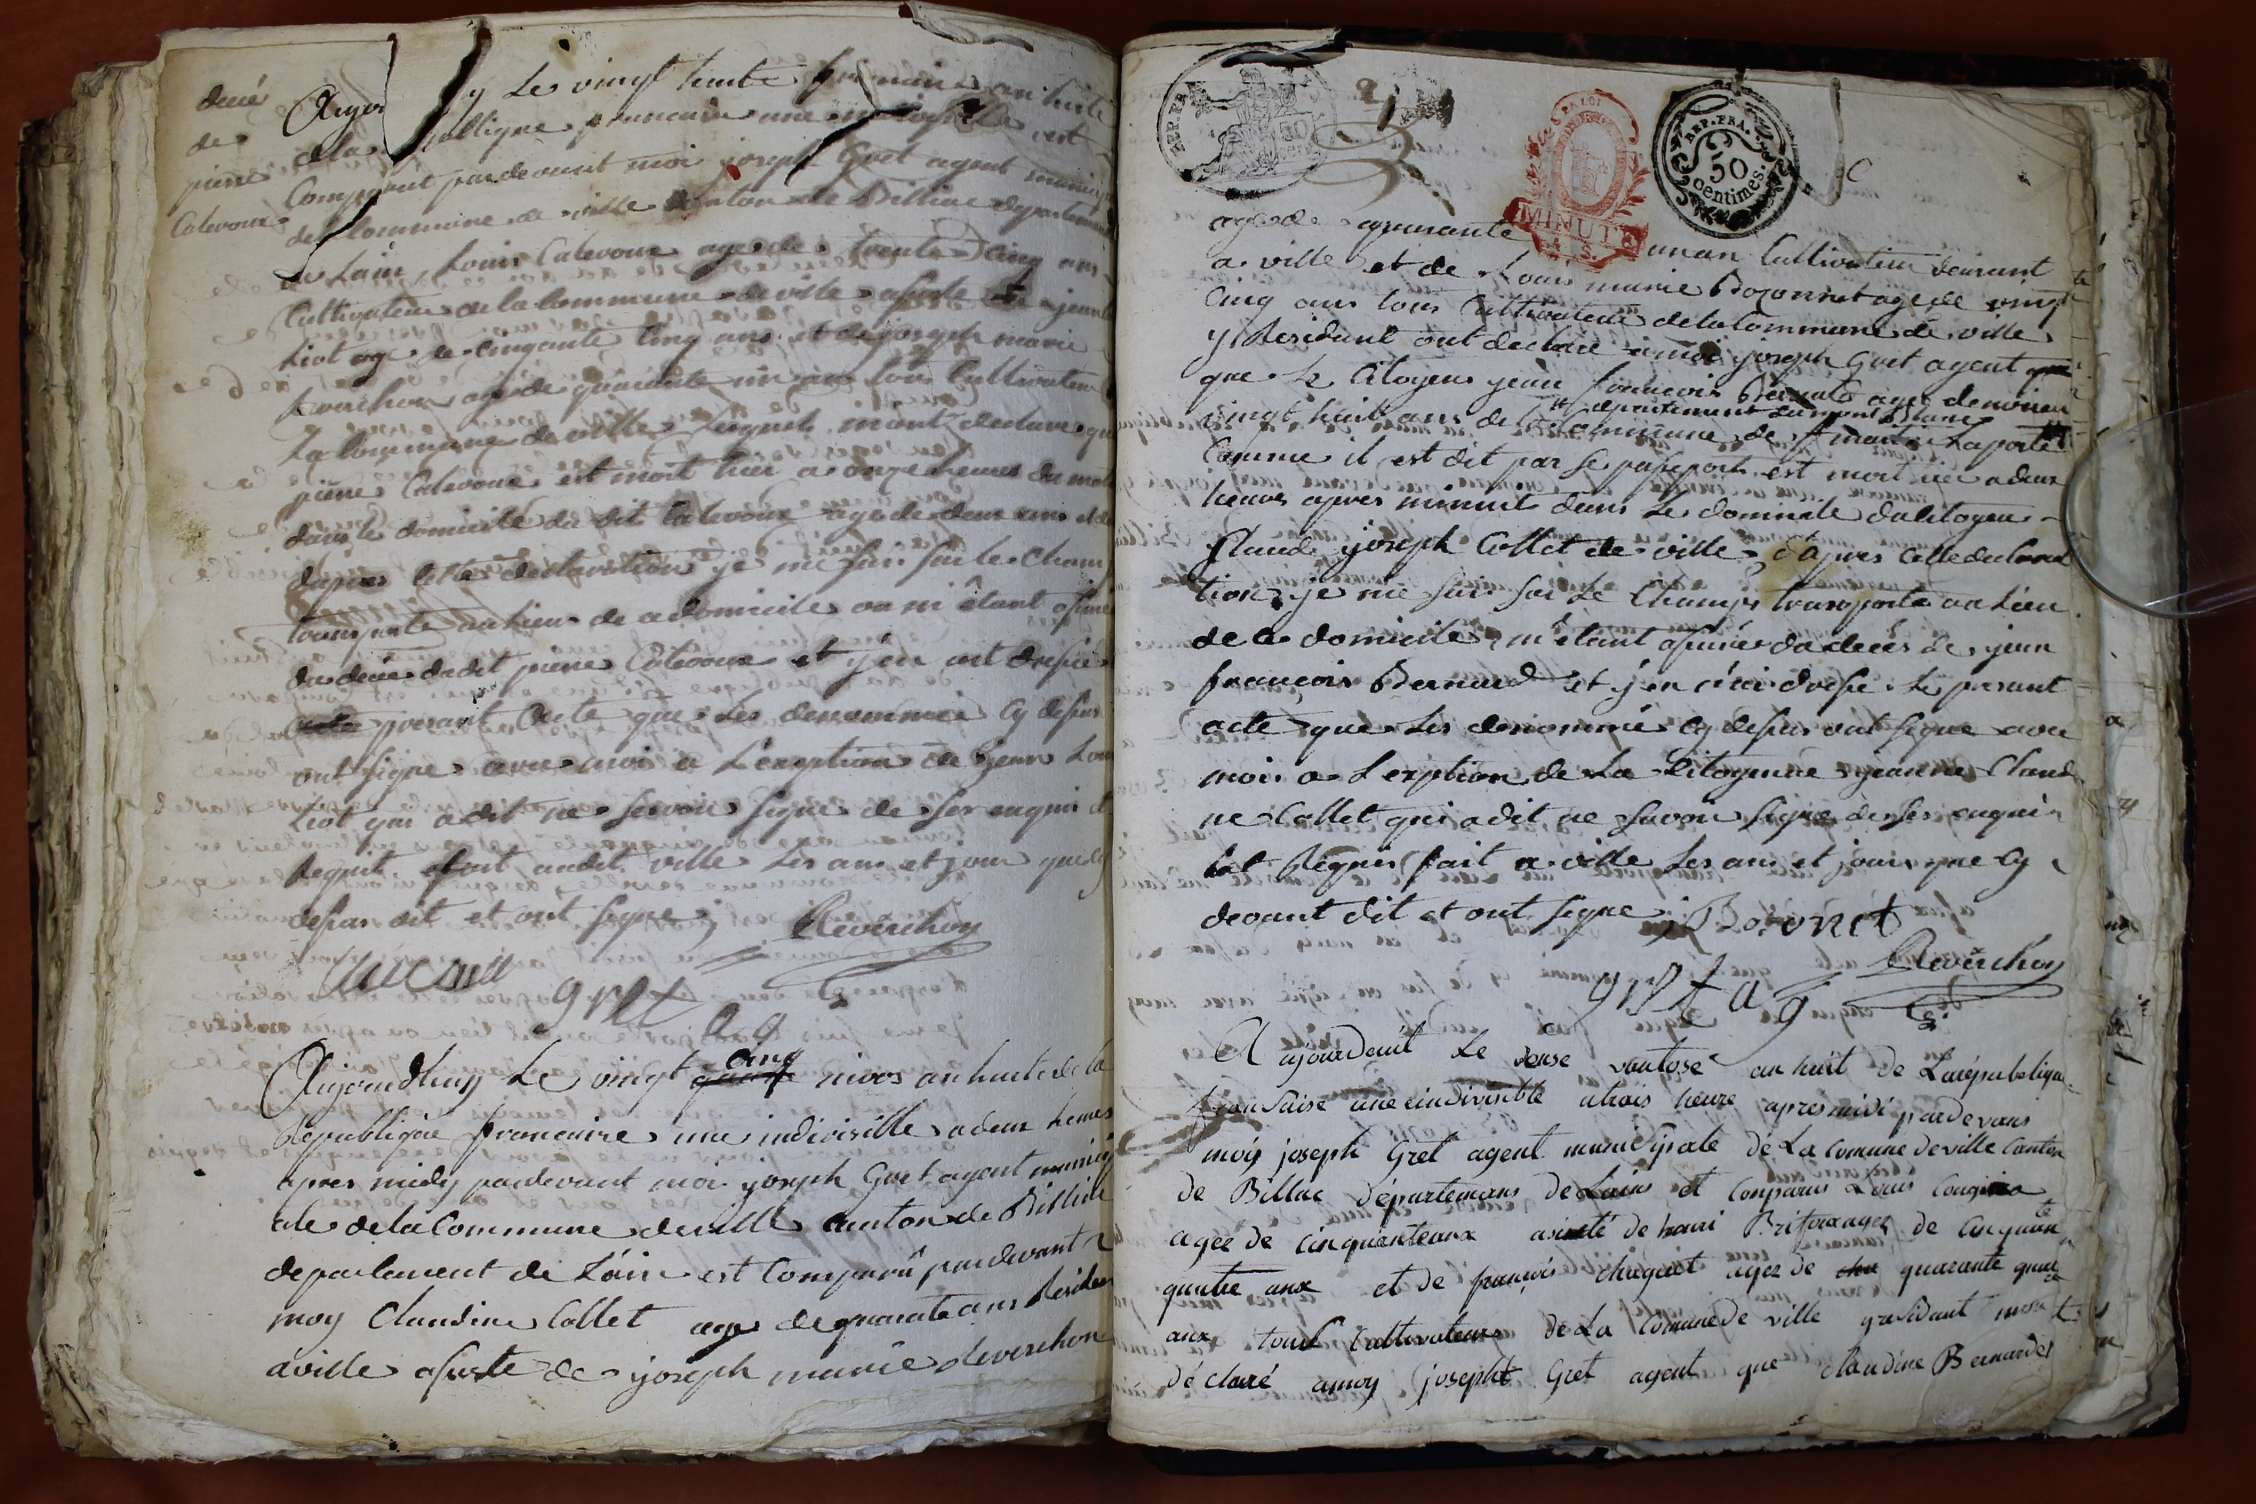 decé
de
pierre
Catevoux
le vingt huite an huite
de la publique francaise une
Comparut pardevant moi joseph Gret agent municip
de Commune de ville Canton de Billiac departement
de Lain, Louis Catevoux age de trente Cinq ans
Cultivateur de la Commune de ville asisté de jean L
Liot age de cinqante Cinq ans et de joseph marie
Reverchon age de quarante un ans tous Cultivateur
La Commune de ville Lesquels m'ont declare que
pierre Catevoux est mort hier a onze heures du mat
dans le domicile du dit Catevoux age de deux ans et de
dapres cette declaration je me suis sur le Champ
transporte au lieu de ce domicile ou m'étant asuré
du decé du dit pierre Catevoux et j'en ait dressé
presant acte que les denommé cy desus
ont signe avec moi a L'exeption de jean Lou
Liot qui a dit ne savoir signe de ses enquis et
Requit fait audit ville Les ans et jour que cy
desus dit et ont signe ;
Reverchon
gret
ag
Aujourdhuy Le vingt quatre cinq nivos an huite de la
Republique francaise une indivisille a deux heures
apres midy pardevant moi joseph Gret agent municip
ale de la Commune de ville canton de Billiac
departement de L'ain est Comparû pardevant
moy Claudine Collet age de quarante ans Residen
a ville asisté de joseph marie Reverchon
2
REP. FRA.
50
centimes.
MINUTE
age de quarante un an Cultivateur demurant
a ville et de Louis marie Bozonnet age de vingt
Cinq ans tous Cultivateur de la Commune de ville
y Residant ont declare a moi joseph Gret agent
que le Citoyens jean francois Bernard age denviron
departement du mont Blanc
vingt huit ans de la Commune de St martin Laporte
Comme il est dit par se paseport est mort ier a deux
heures apres minuit dans Le domicile du Citoyen
Claude joseph Collet de ville, d'apres cette declara
tion je me suis sur Le Champs transporte au Lieu
de ce domicile m'étant asuré du decés de jean
francois Bernard et j'en n'ai dresse Le presant
acte que Les denommé cy desus ont signe avec
moi a L'exption de La Citoyenne jeanne Claud
ne Collet qui a dit ne savoir signe de ses enqui
et Requis fait a ville Les ans et jour que cy
devant dit et ont signe ; Bozonet
Reverchon
gret ag
Aujourdeuit Le dense vantose an huit de Larépubeliqu
franSaise une eindivisible atrois heure apres midi pardevans
moy joseph Gret agent muniSipale dé La comune de ville Canton
de Billiac départemans de Lains et conparus Louis
agee de cinquanteanx asisté de henri Brifoz agez de cinquante
quatre anx et de françois chaquet agez de quarante quatre
anx tous Cultivateurs de La comune de ville résidant mon t
déclaré amoy joseph Gret agent que claudine Bernardet